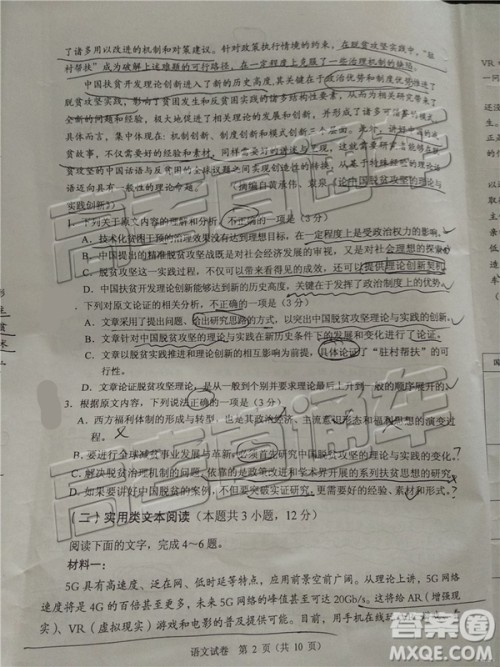 了诸多用以改进的机制和对策建议。针对政策执行情境的约束，在脱贫攻坚实践中，“驻
村帮扶”成为破解上述难题的可行路径，在一定程度上克服了一些治理机制的缺陷。
中国扶贫开发理论创新进入了新的历史高度，其关键在于政治和制度优势推进了
脱贫攻坚实践，影响了贫困发生和反贫困实践的诸多结构性要素。
全新的问题和经验，极大地促进了相关理论的发展与创新
具体而言，集中体现在：机制创新、制度创新和模式创新等
故事，不仅需要好的经验和素材，同样需要深刻的
中国话语与反贫困的全球议题之间实现创造性的转换，从基于特殊经验的理论
话语迈向具有一致性的理论命题。（摘编自黄承伟、袁泉《论中国脱贫攻坚的理论与
实践创新》）
1. 下列关于原文内容的理解和分析，不正确的一项是（3 分）
A. 技术化贫困干预的治理效果没有达到理想目标，在一定程度上是受政治权力的影响。
B. 中国提出的精准脱贫攻坚战既是对社会经济发展的审视，又是对社会理想的探索
C. 脱贫攻坚这一实践过程，不仅可以带来看得见的成效，还可以提供理论创新契机
D. 中国扶贫开发理论创新能够达到新的历史高度，关键在于发挥了政治制度上的优势
. 下列对原文论证的相关分析，不正确的一项是（3 分）
A. 文章采用了提出问题、给出研究思路的方式，以突出中国脱贫攻坚理论与实践的创新。
B. 文章针对中国脱贫攻坚的理论与实践在新历史条件下的发展和变化进行了论证。
C. 文章以脱贫实践推进和理论创新的相互影响为前提，具体论证了“驻村帮扶”的
D. 文章论证脱贫攻坚理论，是从理论的个别性到一般性并要求理论最后上升到一般的顺序展开的。
3. 根据原文内容，下列说法正确的一项是（3 分）
A. 西方福利体制的形成与转型，也是其政治经济、主流意识形态和福利思想的演变过
程。
B. 要进行全球减贫事业发展与革新，必须首先研究中国脱贫攻坚的理论与实践的变化。
C. 解决脱贫治理机制的问题，依靠的是政策改进和学术界开展的系列扶贫思想的研究
D. 如果要讲好中国脱贫的案例，不但要突破实证研究，更重要的是经验、素材和形式。
（二）实用类文本阅读（本题共 3 小题，12 分）
阅读下面的文字，完成 4～6 题。
材料一：
5G 具有高速度、泛在网、低时延等特点，应用前景空前广阔。从理论上讲，5G 网络
速度将是 4G 的百倍甚至更多，未来 5G 网络的峰值甚至可达 20Gb/s。这将为 AR（增强现
实）、VR（虚拟现实）游戏和电影的普及提供可能。目前，用手机在线
语文试卷 第 2 页（共 10 页）
高考直通车
高考直通车
答案圈